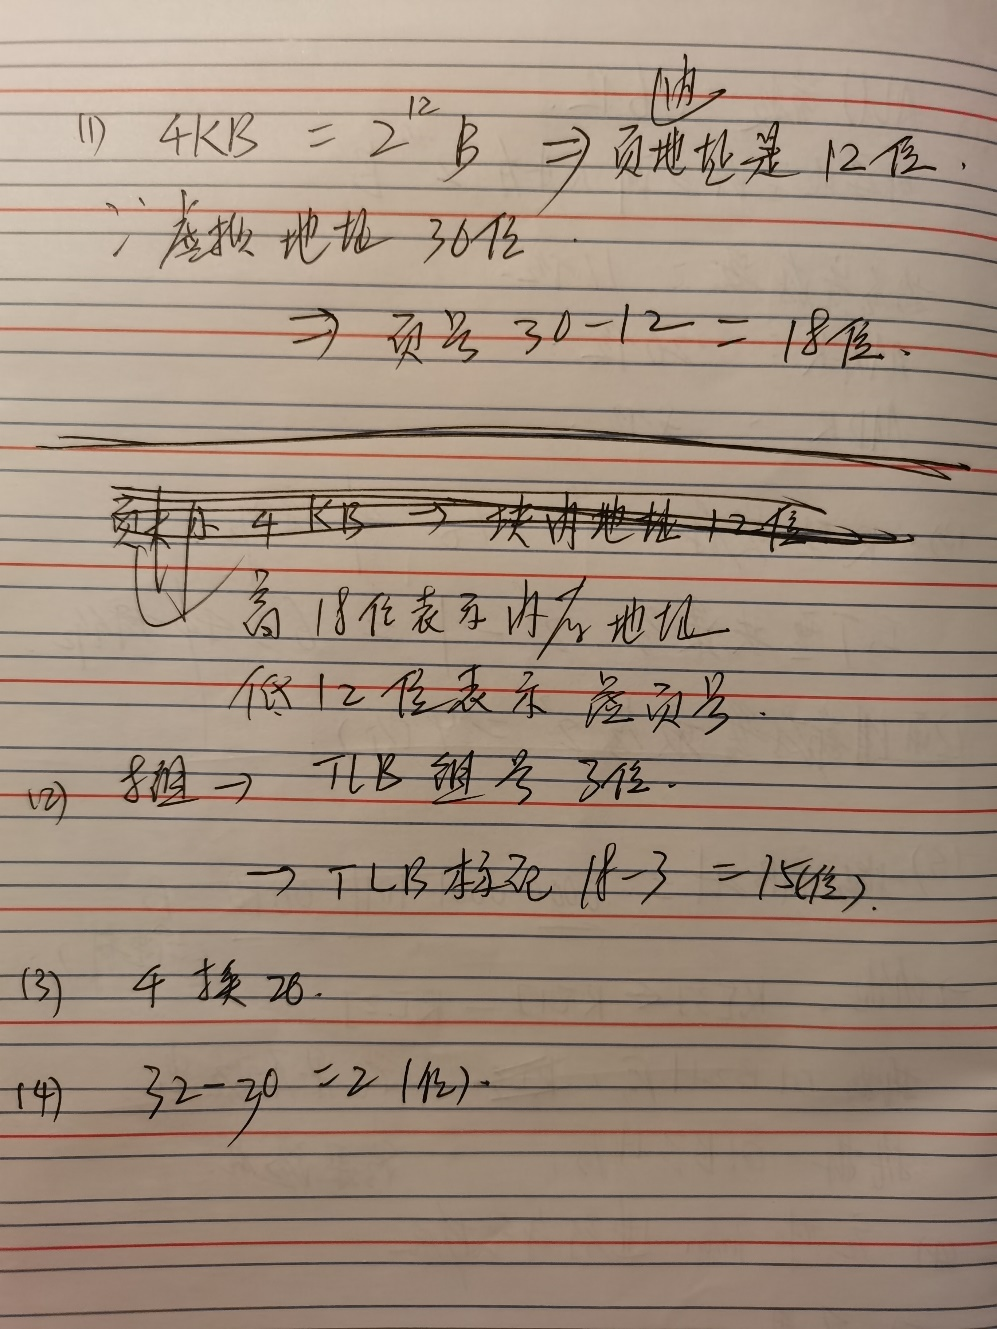 (1) 4KB = 2^12 B ⇒ 页内地址是 12位.
∵虚拟地址 30位.
⇒ 页号 30-12 = 18位.
页大小 4KB → 块内地址 12位
高 18位表示内存地址
低 12 位表示虚页号.
(2) 8组 → TLB 组号 3位.
→ TLB标记 18-3 = 15(位).
(3) 4 换 20.
(4) 32-30 = 2 (位).